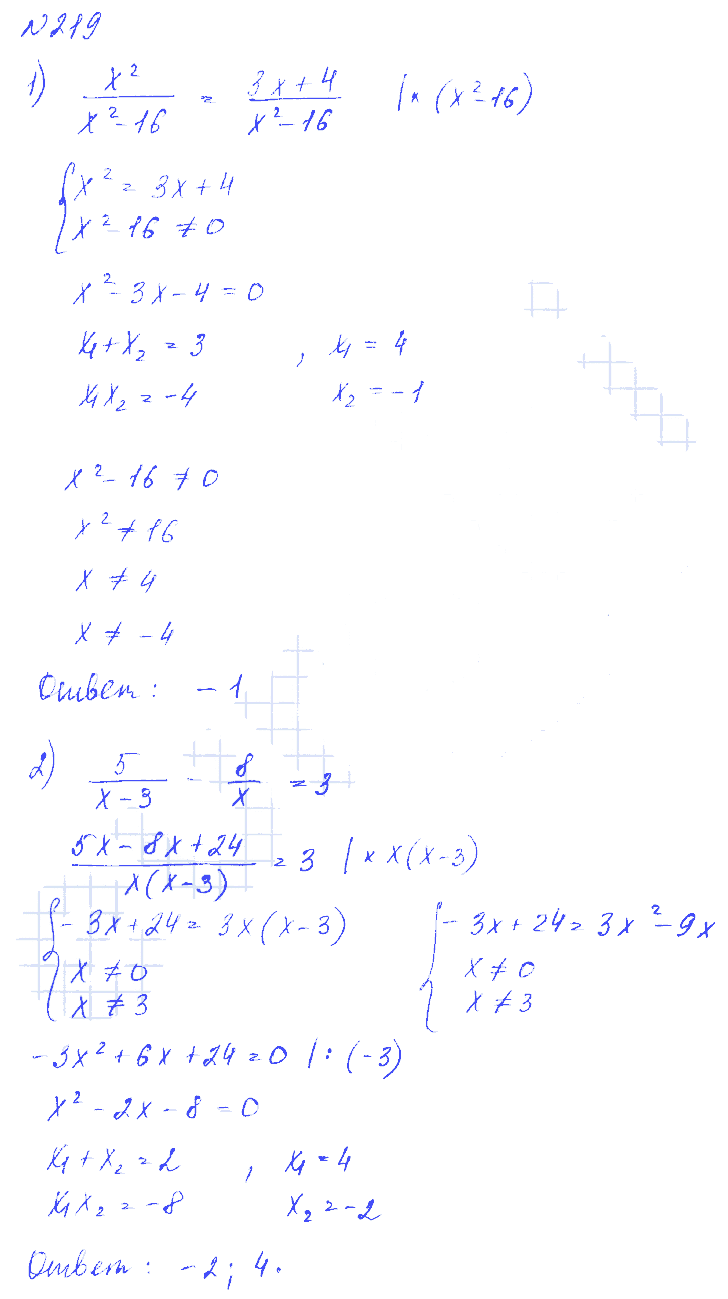 N219
1) x²/(x²-16) = (3x+4)/(x²-16) |× (x²-16)
{x² = 3x+4
x²-16 ≠ 0
x²-3x-4=0
x₁+x₂ = 3 , x₁ = 4
x₁x₂ = -4 x₂ = -1
x²-16 ≠ 0
x² ≠ 16
x ≠ 4
x ≠ -4
Ответ: -1
2) 5/(x-3) - 8/x = 3
(5x-8x+24)/(x(x-3)) = 3 |× x(x-3)
{-3x+24 = 3x(x-3) {-3x+24 = 3x²-9x
x ≠ 0 x ≠ 0
x ≠ 3 x ≠ 3
-3x²+6x+24=0 |: (-3)
x²-2x-8=0
x₁+x₂ = 2 , x₁ = 4
x₁x₂ = -8 x₂ = -2
Ответ: -2; 4.